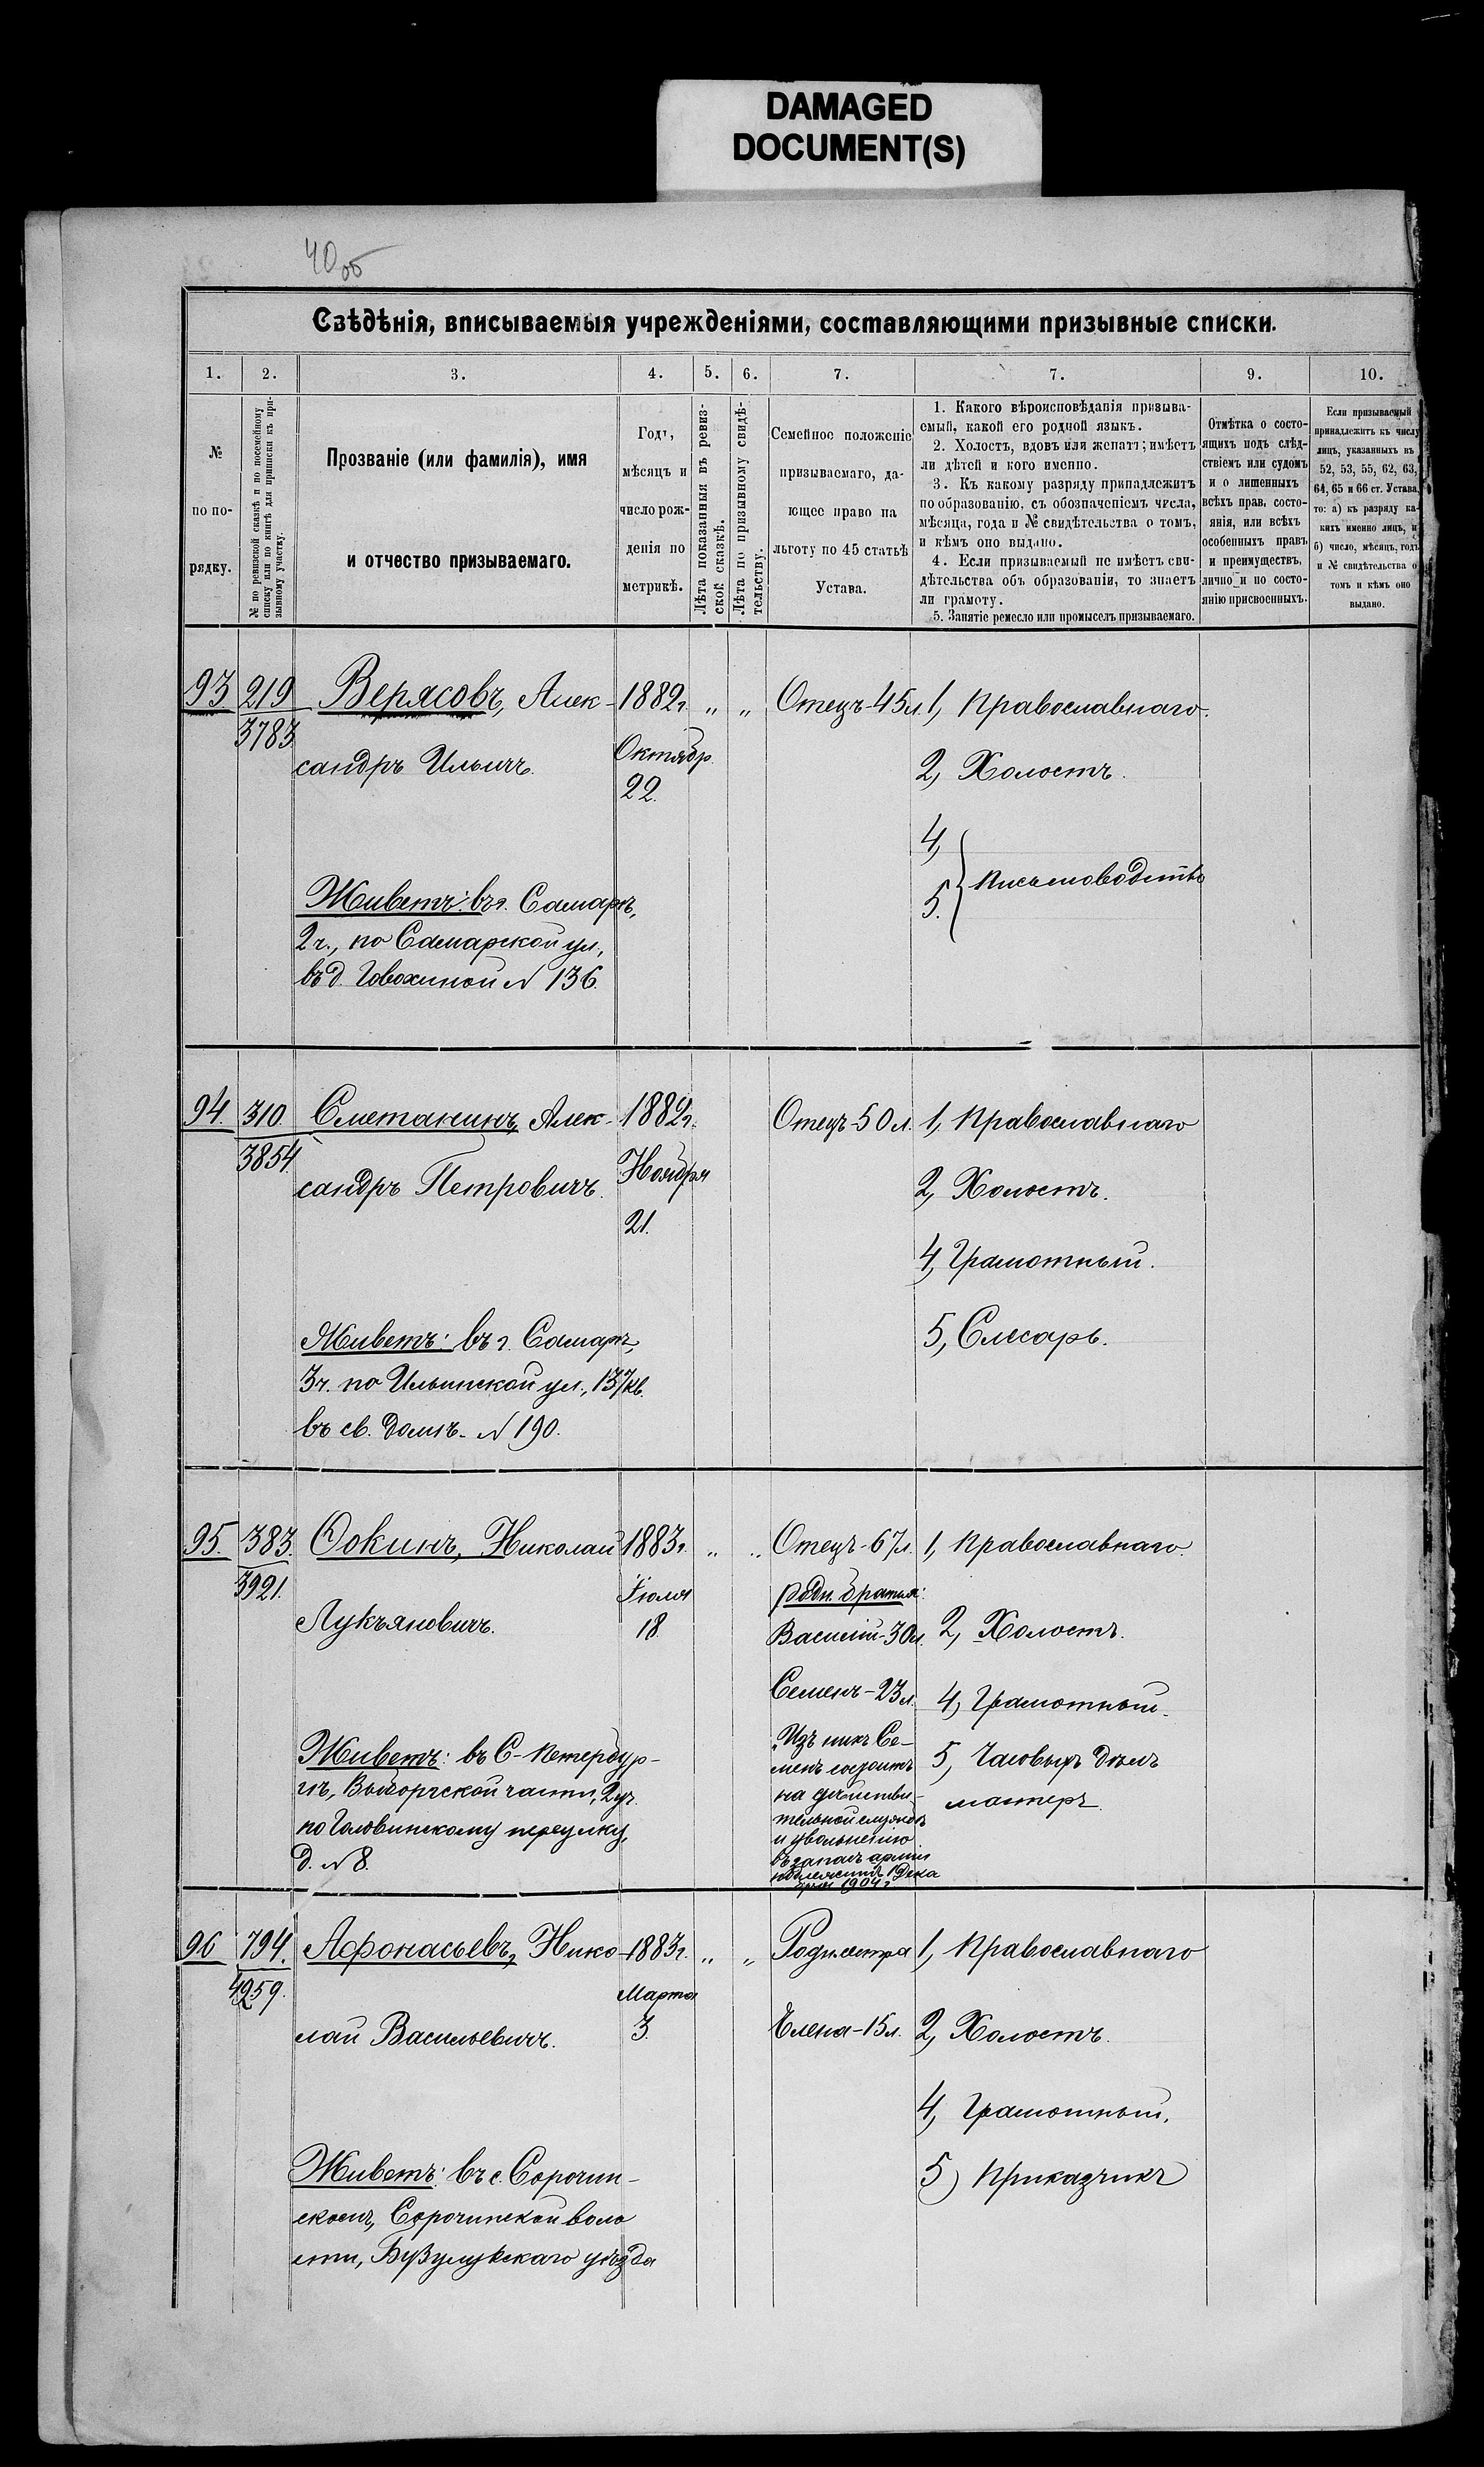 DAMAGED
DOCUMENT(S)
40об
Свѣдѣнія, вписываемыя учрежденіями, составляющими призывные списки.
1. 2. 3. 4. 5. 6. 7. 7. 9. 10.
№
по по-
рядку.
№ по ревизской сказкѣ и по посемейному
списку или по книгѣ для приписки къ при-
зывному участку.
Прозваніе (или фамилія), имя
и отчество призываемаго.
Годъ,
мѣсяцъ и
число рож-
денія по
метрикѣ.
Лѣта показанныя въ ревиз-
ской сказкѣ.
Лѣта по призывному свидѣ-
тельству.
Семейное положеніе
призываемаго, да-
ющее право на
льготу по 45 статьѣ
Устава.
1. Какого вѣроисповѣданія призыва-
емый, какой его родной языкъ.
2. Холостъ, вдовъ или женатъ; имѣетъ
ли дѣтей и кого именно.
3. Къ какому разряду принадлежитъ
по образованію, съ обозначеніемъ числа,
мѣсяца, года и № свидѣтельства о томъ,
и кѣмъ оно выдано.
4. Если призываемый не имѣетъ сви-
дѣтельства объ образованіи, то знаетъ
ли грамоту.
5. Занятіе ремесло или промыселъ призываемаго.
Отмѣтка о состо-
ящихъ подъ слѣд-
ствіемъ или судомъ
и о лишенныхъ
всѣхъ прав. состо-
янія, или всѣхъ
особенныхъ правъ
и преимуществъ,
лично и по состо-
янію присвоенныхъ.
Если призываемый
принадлежитъ къ числу
лицъ, указанныхъ въ
52, 53, 55, 62, 63,
64, 65 и 66 ст. Устава,
то: а) къ разряду ка-
кихъ именно лицъ, и
б) число, мѣсяцъ, годъ
и № свидѣтельства о
томъ и кѣмъ оно
выдано.
93 219 Верясовъ, Алек- 1882г. „ „ Отецъ-45л. 1, Православнаго.
3783
сандръ Ильичъ. Октябр. 2, Холостъ.
22.
4,
5. Письмоводство
Живетъ: въ г. Самарѣ,
2 ч., по Самарской ул.,
въ д. № 136.
94. 310. Сметанинъ, Алек- 1882г. Отецъ-50л. 1, Православнаго
3854.
сандръ Петровичъ. Ноября 2, Холостъ.
21.
4, Грамотный.
Живетъ: въ г. Самарѣ, 5, Слесарь.
3 ч. по Ильинской ул., 137 кв.
въ св. домѣ. № 190.
95. 383. Ѳокинъ, Николай 1883г. „ „ Отецъ-67л. 1, Православнаго.
3921. Іюля родн. братья:
Лукъяновичъ. 18 Василій-30л. 2, Холостъ.
Семенъ-23л. 4, Грамотный.
Живетъ: въ С-Петербур- Изъ нихъ Се- 5, Часовыхъ дѣлъ
гѣ, Выборгской части, 2 уч. менъ состоитъ мастеръ.
по Головинскому переулку, на дѣйстви-
д. № 8. тельной службѣ
и увольненію
въ запасъ арміи
подлежитъ 1 Дека
бря 1904 г
96 794. Афонасьевъ, Нико- 1883г. „ „ Родн. сестра 1, Православнаго
4259. Марта
лай Васильевичъ. 3. Елена-15л. 2, Холостъ.
4, Грамотный.
Живетъ: въ с. Сорочин- 5) Приказчикъ
скомъ, Сорочинской воло
сти, Бузулукскаго уѣзда